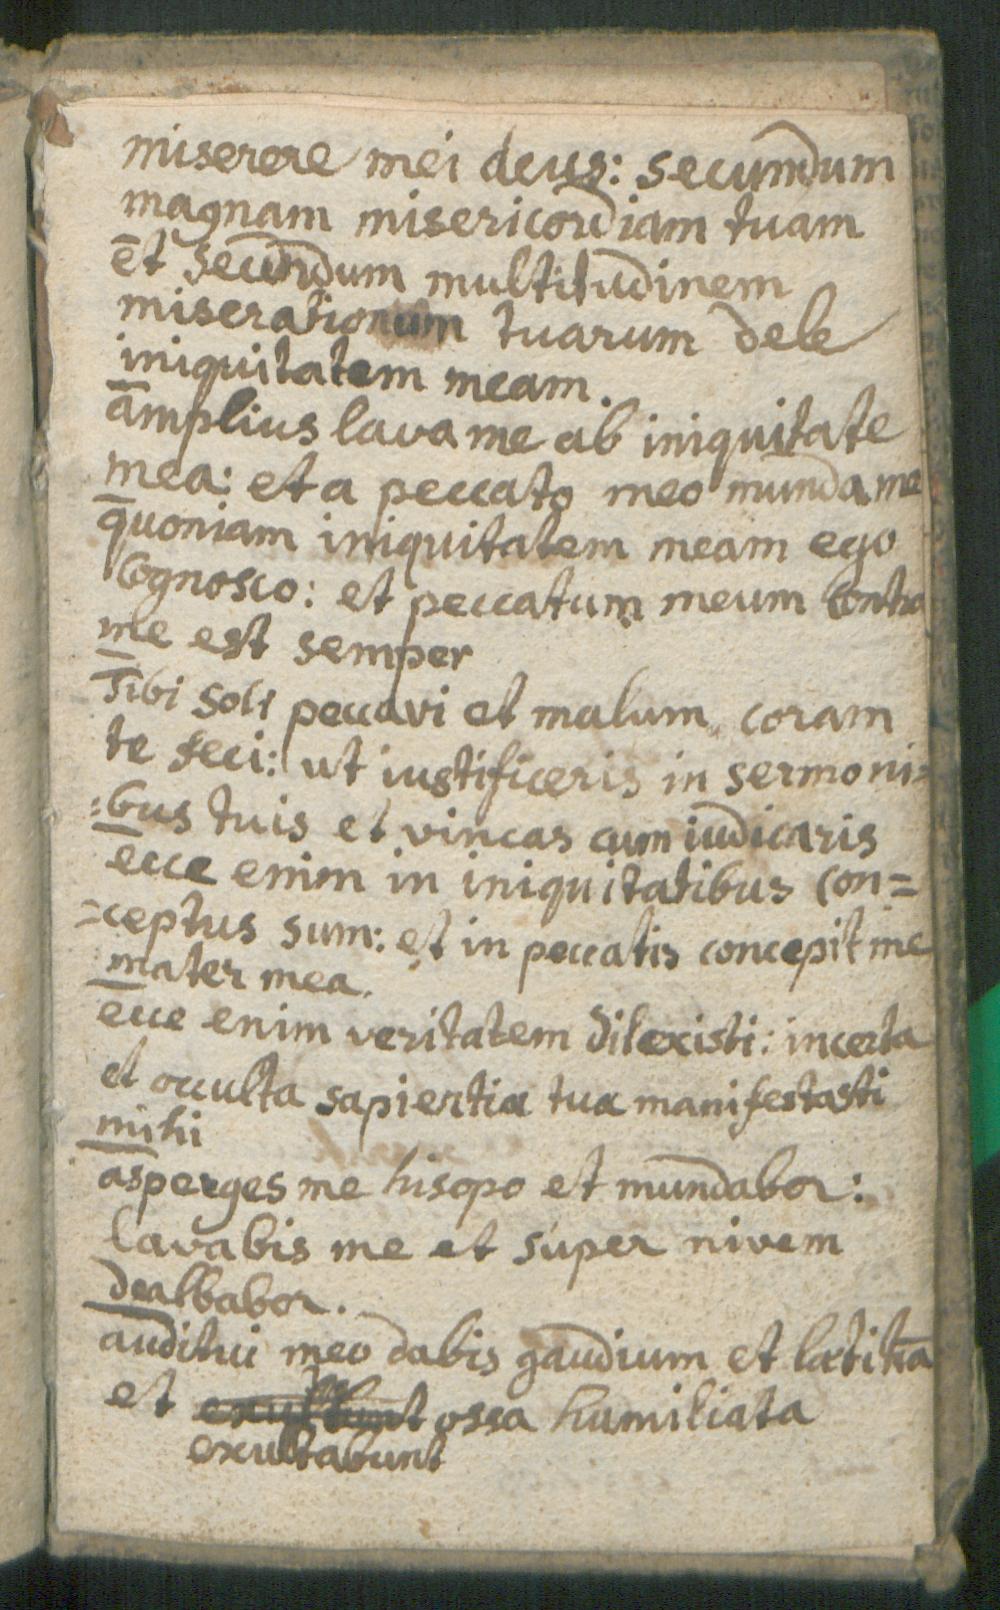 miserere mei deus: secundum
magnam misericordiam tuam
et secundum multitudinem
miserationum tuarum dele
iniquitatem meam.
amplius lava me ab iniquitate
mea: et a peccato meo munda me
quoniam iniquitatem meam ego
Cognosco: et peccatum meum contra
me est semper
Tibi soli peccavi et malum coram
te feci: ut iustificeris in sermoni=
=bus tuis et vincas cum iudicaris
ecce enim in iniquitatibus con=
=ceptus sum: et in peccatis concepit me
mater mea.
ecce enim veritatem dilexisti: incerta
et occulta sapientia tua manifestasti
mihi
asperges me hisopo et mundabor:
lavabis me et super nivem
dealbabor.
auditui meo dabis gaudium et lætitiã
et ossa humiliata
exultabunt